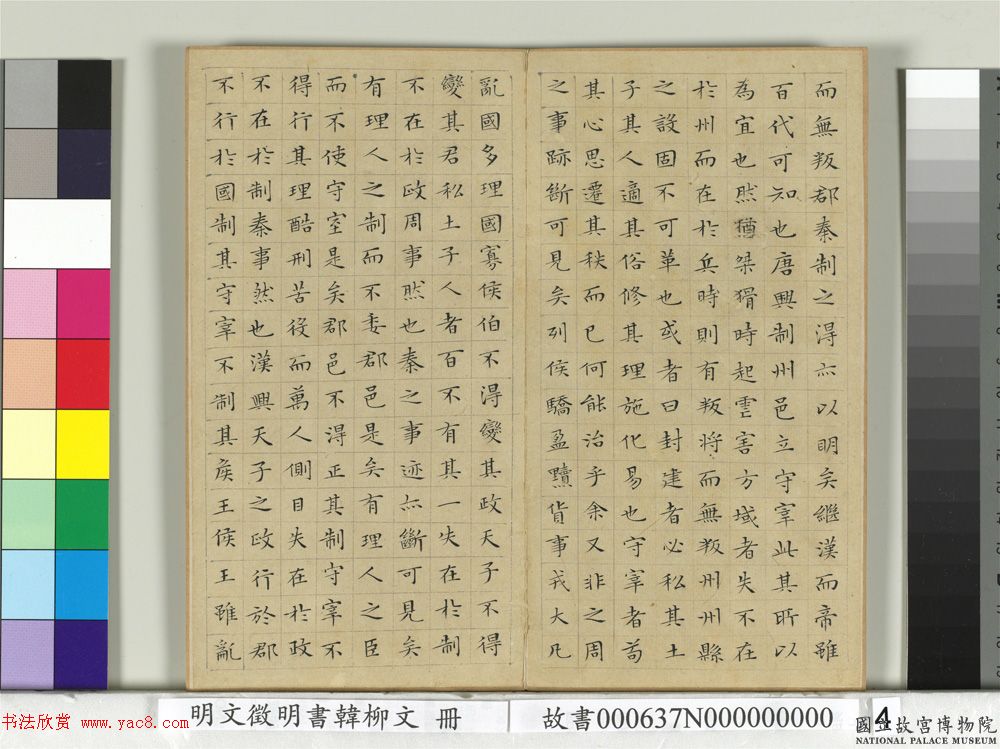 而無叛郡秦制之得亦以明矣繼漢而帝雖
百代可知也唐興制州邑立守宰此其所以
為宜也然猶桀猾時起虐害方域者失不在
於州而在於兵時則有叛將而無叛州州縣
之設固不可革也或者曰封建者必私其土
子其人適其俗修其理施化易也守宰者苟
其心思遷其秩而已何能治乎余又非之周
之事跡斷可見矣列侯驕盈黷貨事戎大凡
亂國多理國寡侯伯不得變其政天子不得
變其君私土子人者百不有其一失在於制
不在於政周事然也秦之事迹亦斷可見矣
有理人之制而不委郡邑是矣有理人之臣
而不使守室是矣郡邑不得正其制守宰不
得行其理酷刑苦役而萬人側目失在於政
不在於制秦事然也漢興天子之政行於郡
不行於國制其守宰不制其侯王侯王雖亂
明文徵明書韓柳文 冊
故書000637N000000000
4
书法欣赏 www.yac8.com
國立故宮博物院
NATIONAL PALACE MUSEUM